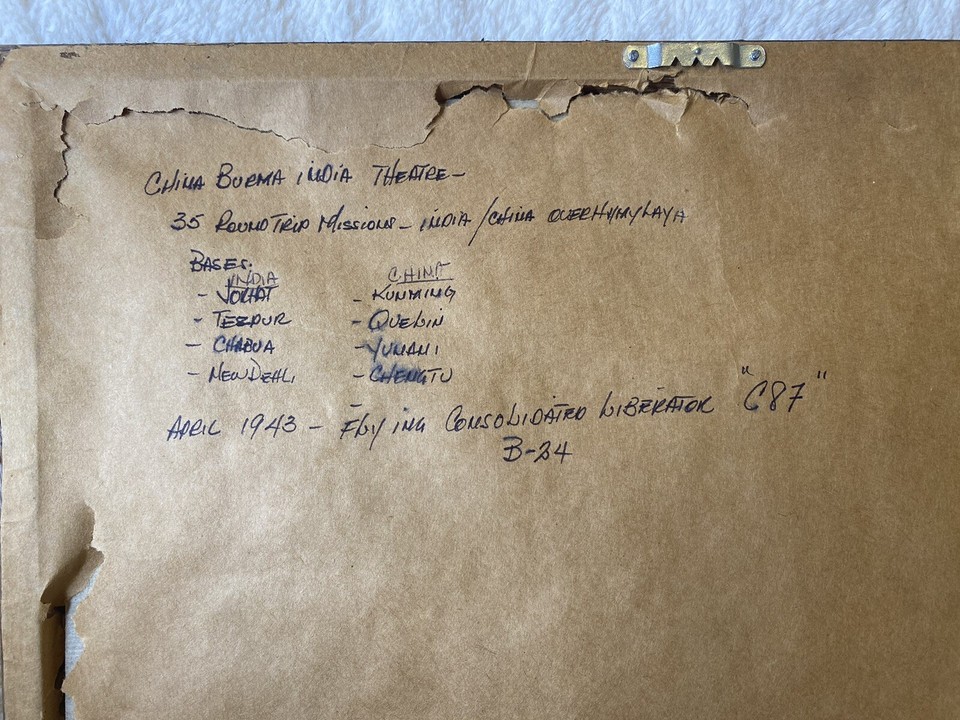 CHINA BURMA INDIA THEATRE-
35 ROUNDTRIP MISSIONS - INDIA/CHINA OVER HYMYLAYA
BASES:
INDIA CHINA
- JORHAT - KUNMING
- TEZPUR - QUELIN
- CHABUA - YUNANI
- NEW DEHLI - CHENGTU
APRIL 1943 - FLYING CONSOLIDATED LIBERATOR "C87"
B-24